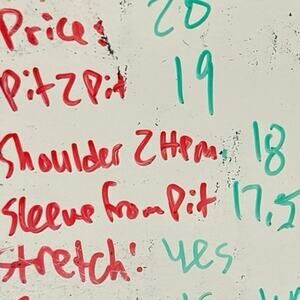 Price: 20
Pit 2 Pit 19
Shoulder 2 Hem 18
Sleeve from Pit 17.5
Stretch: yes